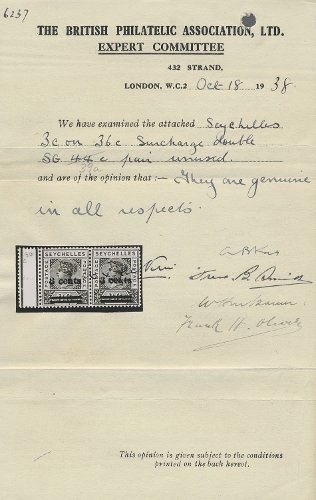 6237
THE BRITISH PHILATELIC ASSOCIATION, LTD.
EXPERT COMMITTEE
432 STRAND,
LONDON, W.C.2 Oct 18 1938
We have examined the attached Seychelles
3c on 36c Surcharge double
SG 44c pair unused
39a
and are of the opinion that :— They are genuine
in all respects.
SEYCHELLES SEYCHELLES
3 cents 3 cents
Frank H. Oliver
This opinion is given subject to the conditions
printed on the back hereof.